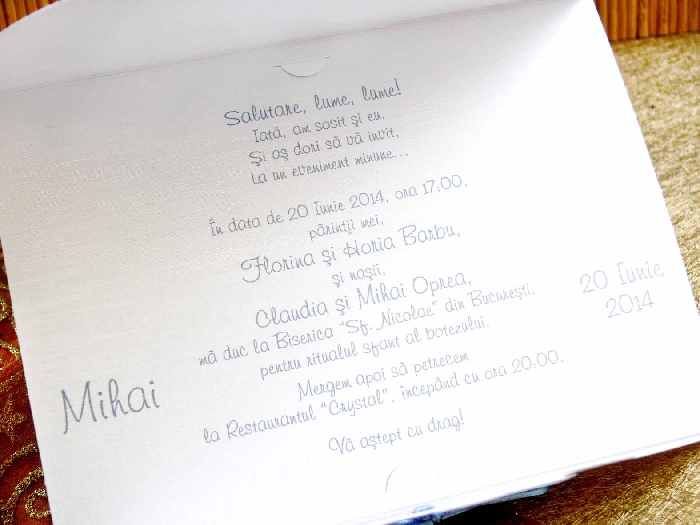 Salutare, lume, lume!
Iată, am sosit şi eu.
Şi aş dori să vă invit,
La un eveniment minune...
În data de 20 Iunie 2014, ora 17:00,
părinţii mei,
Florina şi Horia Barbu,
şi naşii,
Claudia şi Mihai Oprea,
mă duc la Biserica "Sf. Nicolae" din Bucureşti,
pentru ritualul sfant al botezului.
Mergem apoi să petrecem
la Restaurantul "Crystal", începând cu ora 20:00.
Vă aştept cu drag!
Mihai
20 Iunie
2014